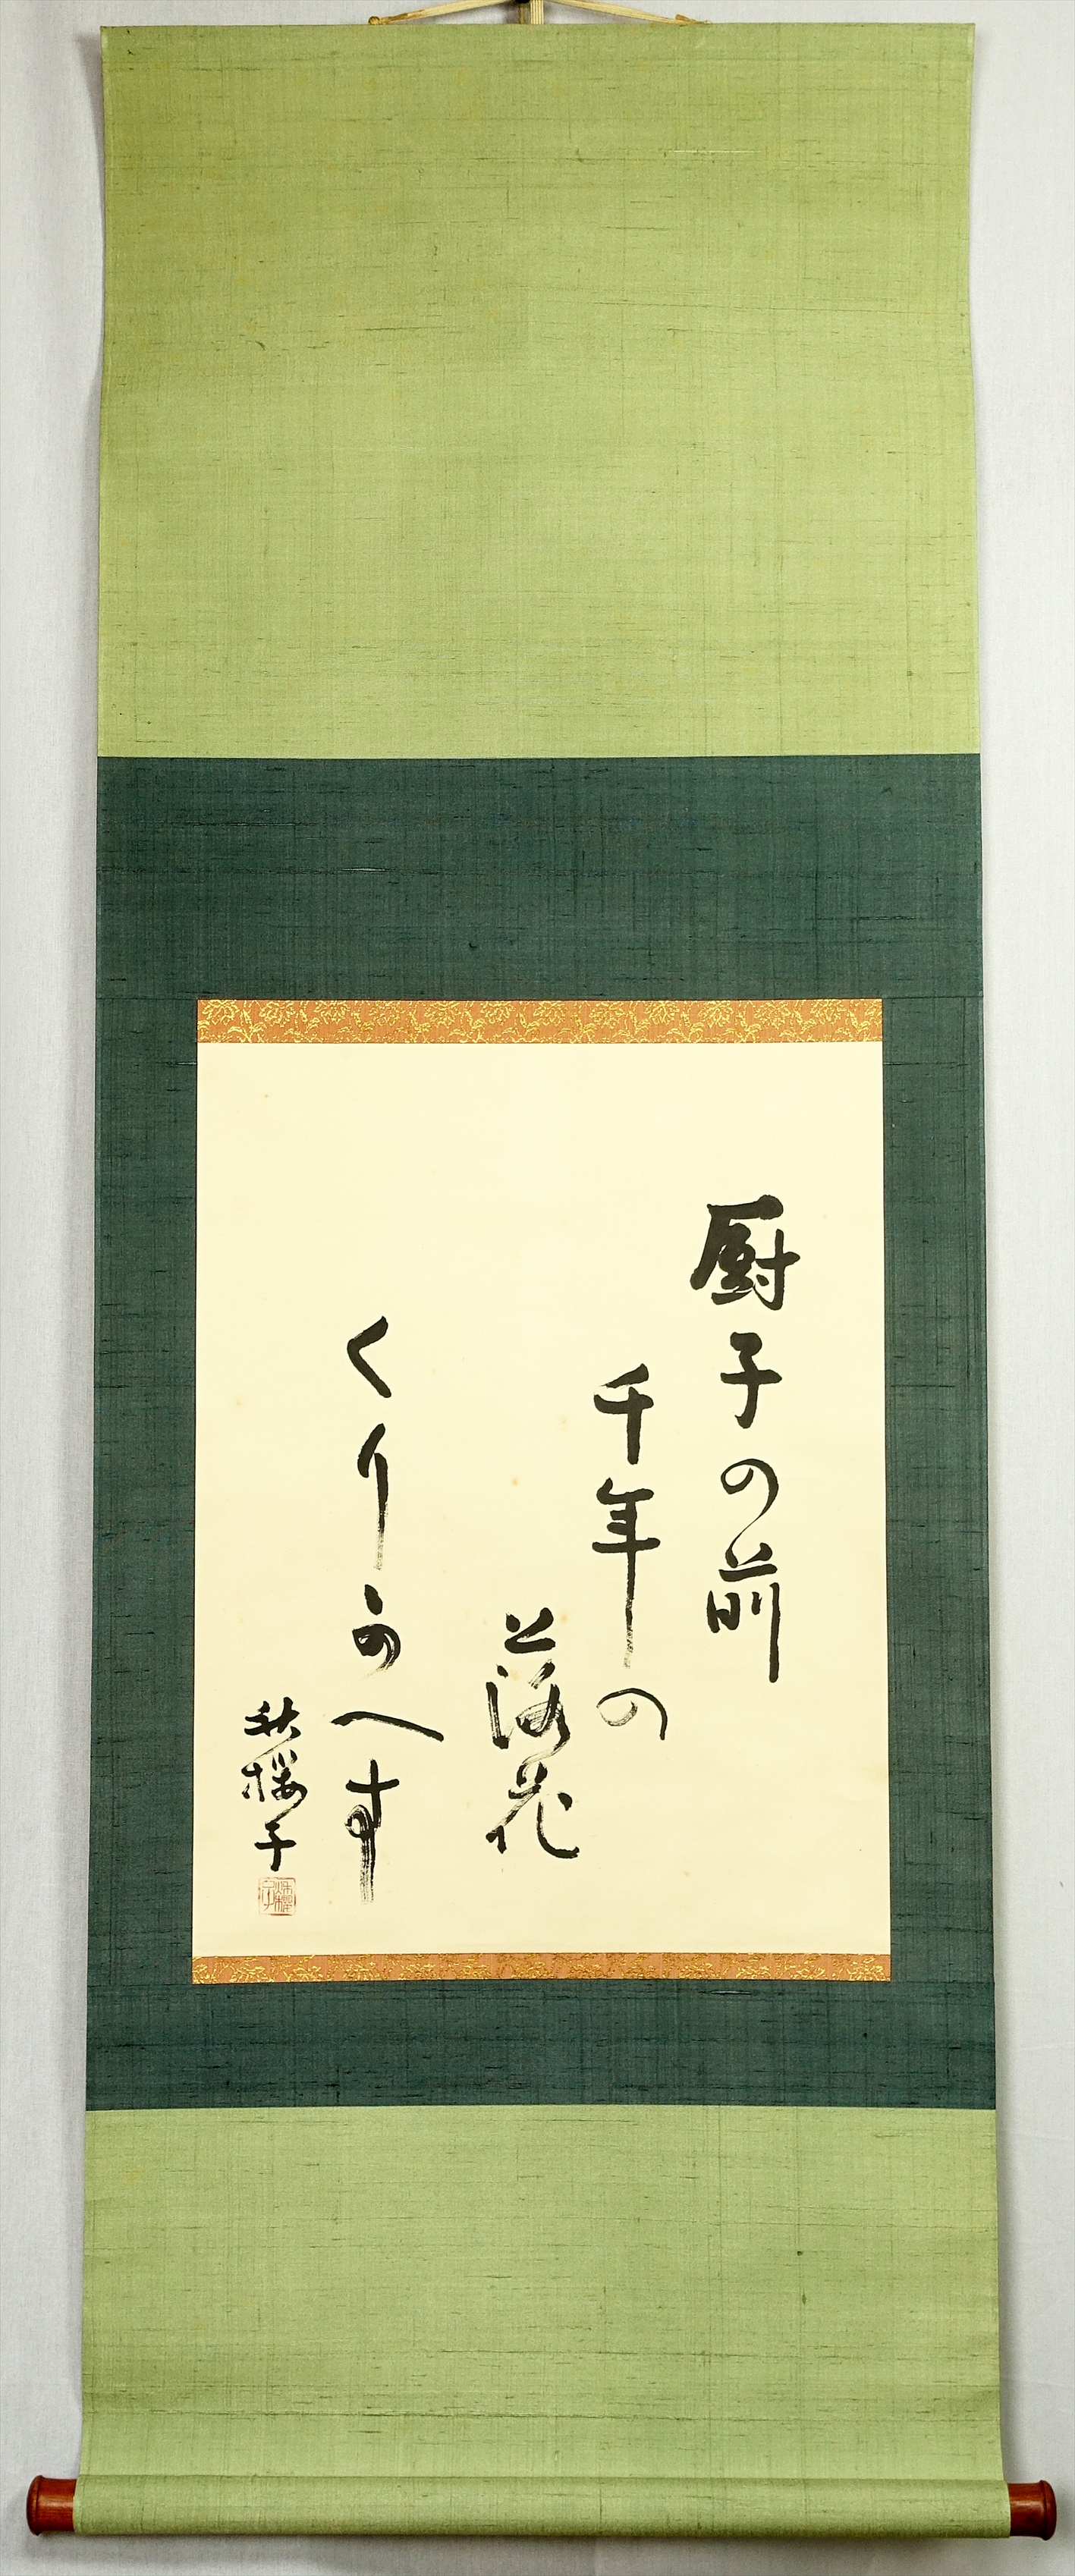 厨子の前
千年の
落花
くりかへす
秋櫻子
秋櫻子